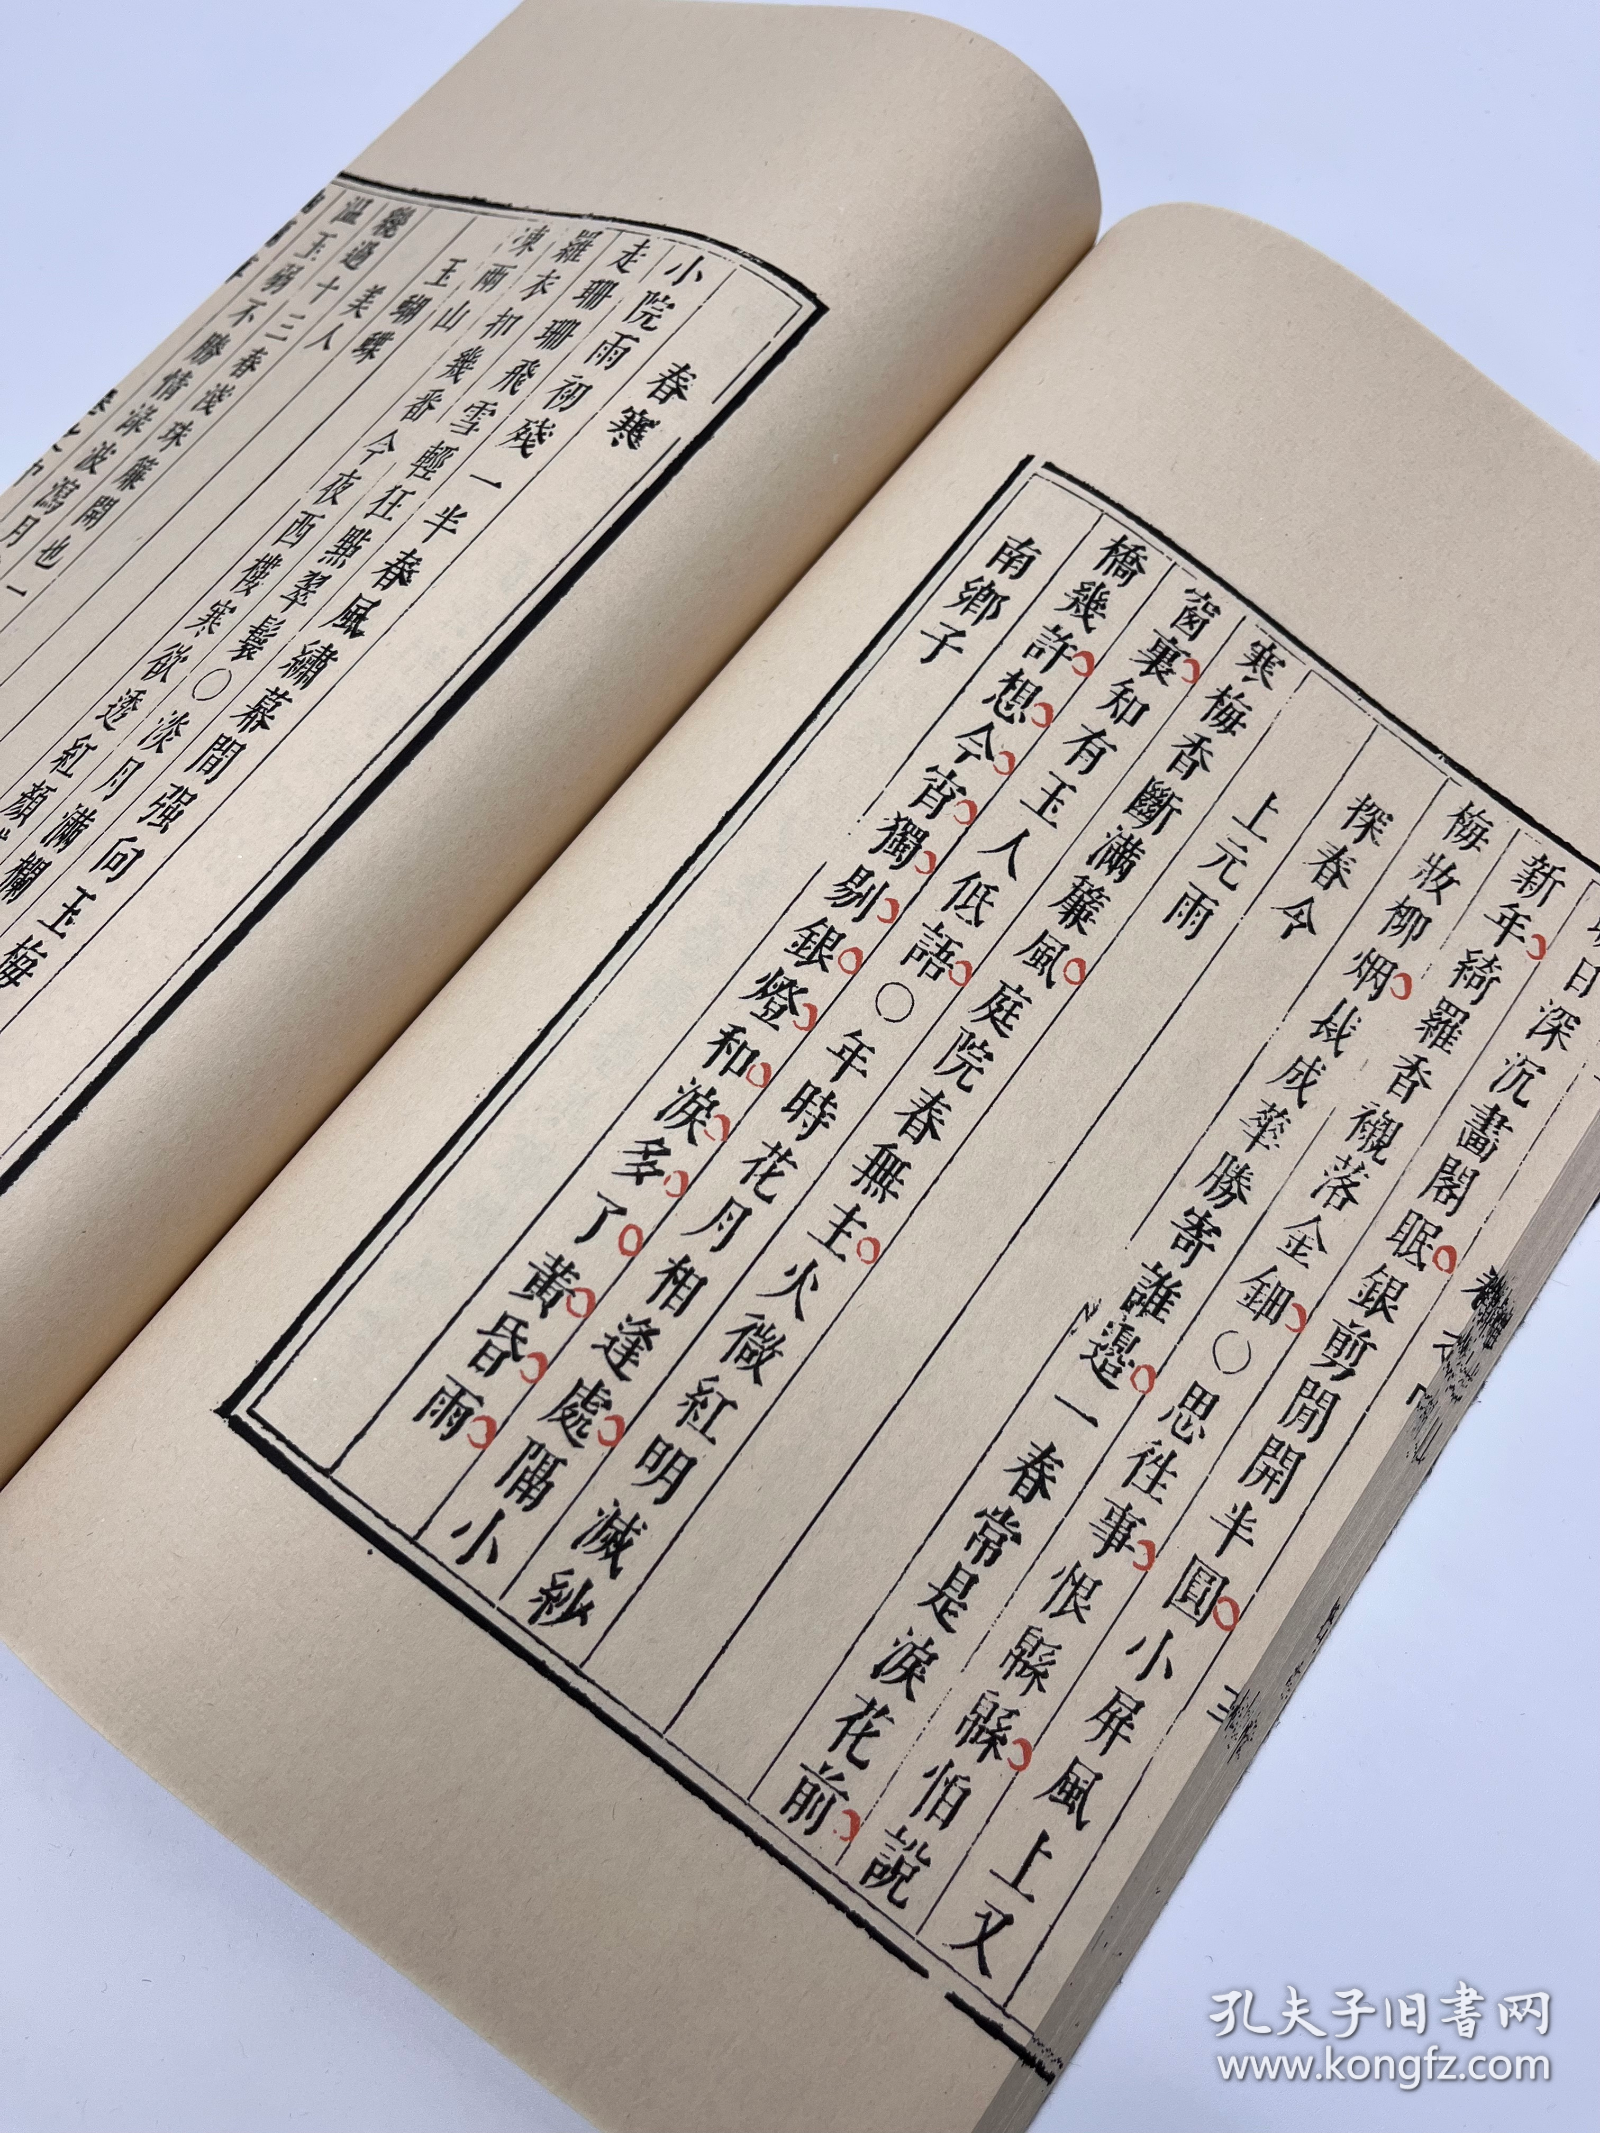 日深沉畫閣眠銀剪閒開半圓小屏風上又
新年綺羅香襯落金鈿○思往事恨緜緜怕說
梅妝柳烟裁成華勝寄誰邊一春常是淚花前
探春令
上元雨
寒梅香斷滿簾風庭院春無主火微紅明滅紗
窗裏知有玉人低語○年時花月相逢處隔小
橋幾許想今宵獨剔銀燈和淚多了黃昏雨
南鄉子
春寒
小院雨初殘一半春風繡幕間强向玉梅
走珊珊飛雪輕狂點翠鬟○淡月滿欄
羅衣扣幾番今夜西樓寒欲透紅顏
凍兩山
玉蝴蝶
美人
纔過十三春淺珠簾開也
溫玉弱不勝情淥波瀉月
孔夫子旧书网
www.kongfz.com